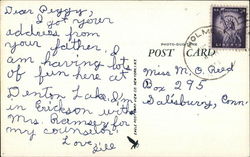 Dear Peggy,
I got your
address from
your father. I
am having lots
of fun here at
Denton Lake. I'm
in Erickson with
Mrs. Ramsey for
my counselor.
Love
Jill
POST CARD
Miss M. C. Reed
Box 295
Salisbury, Conn.